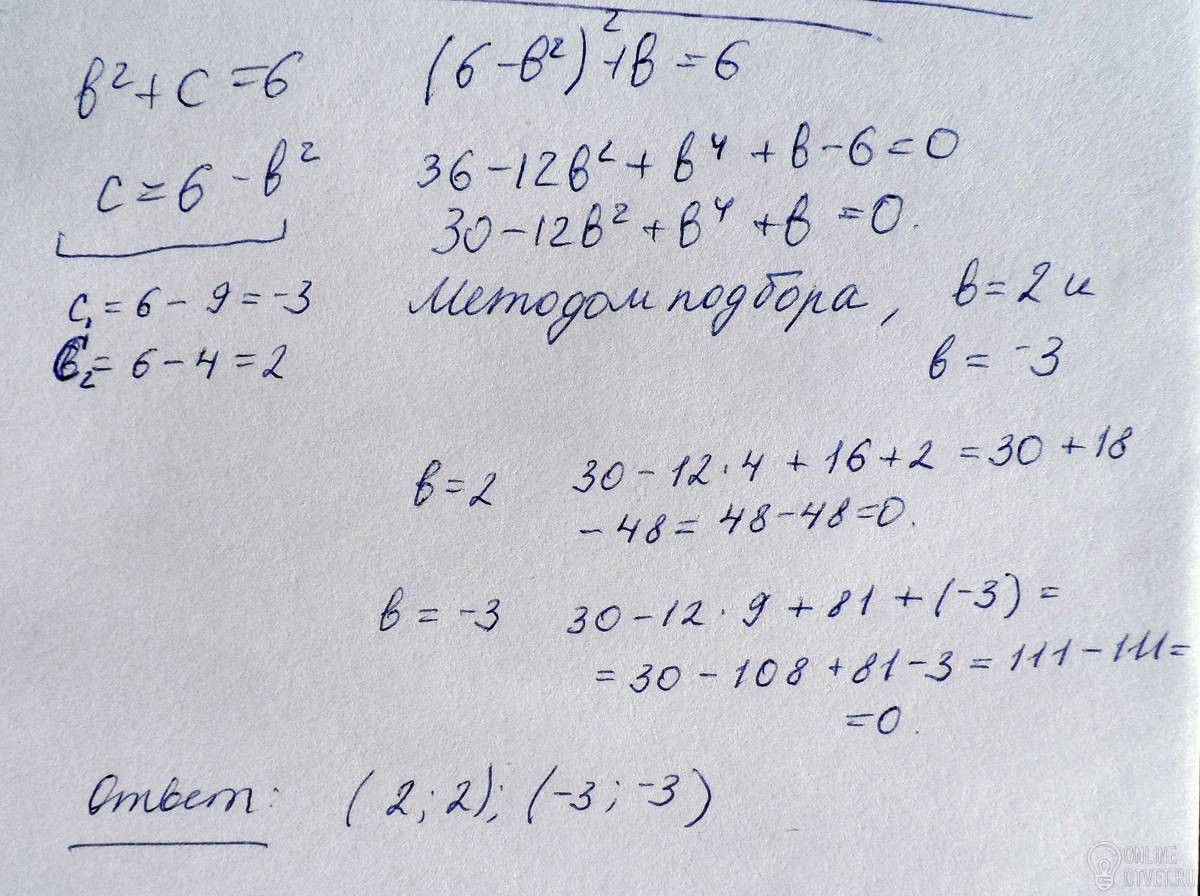 в² + с = 6
(6 - в²)² + в = 6
с = 6 - в²
36 - 12в² + в⁴ + в - 6 = 0
30 - 12в² + в⁴ + в = 0.
с₁ = 6 - 9 = -3
с₂ = 6 - 4 = 2
Методом подбора, в = 2 и
в = -3
в = 2 30 - 12 · 4 + 16 + 2 = 30 + 18
- 48 = 48 - 48 = 0.
в = -3 30 - 12 · 9 + 81 + (-3) =
= 30 - 108 + 81 - 3 = 111 - 111 =
= 0.
Ответ: (2; 2); (-3; -3)
ONLINE
OTVET.RU